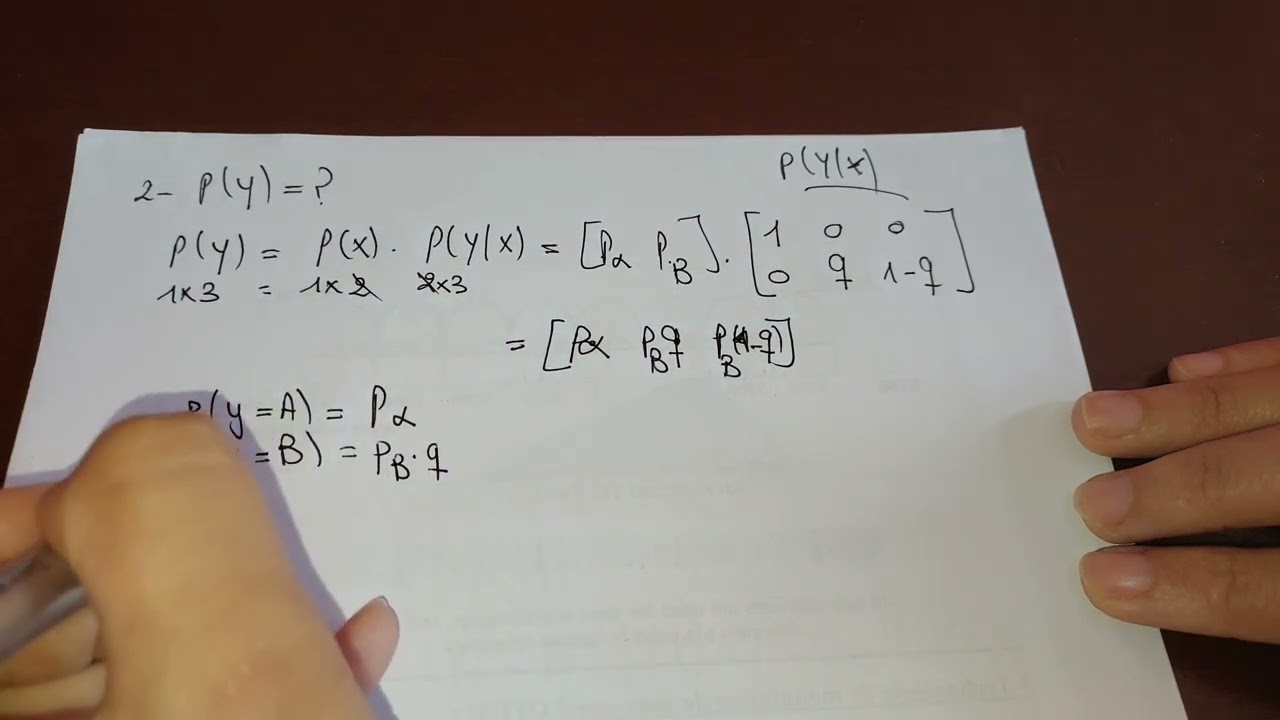 2- P(y) = ?
P(Y|x)
P(y) = P(x) . P(Y|x) = [Pα P.B] . [1 0 0
0 q 1-q]
1x3 = 1x2 2x3
= [Pα PBq PB(1-q)]
P(y = A) = Pα
= B) = PB . q